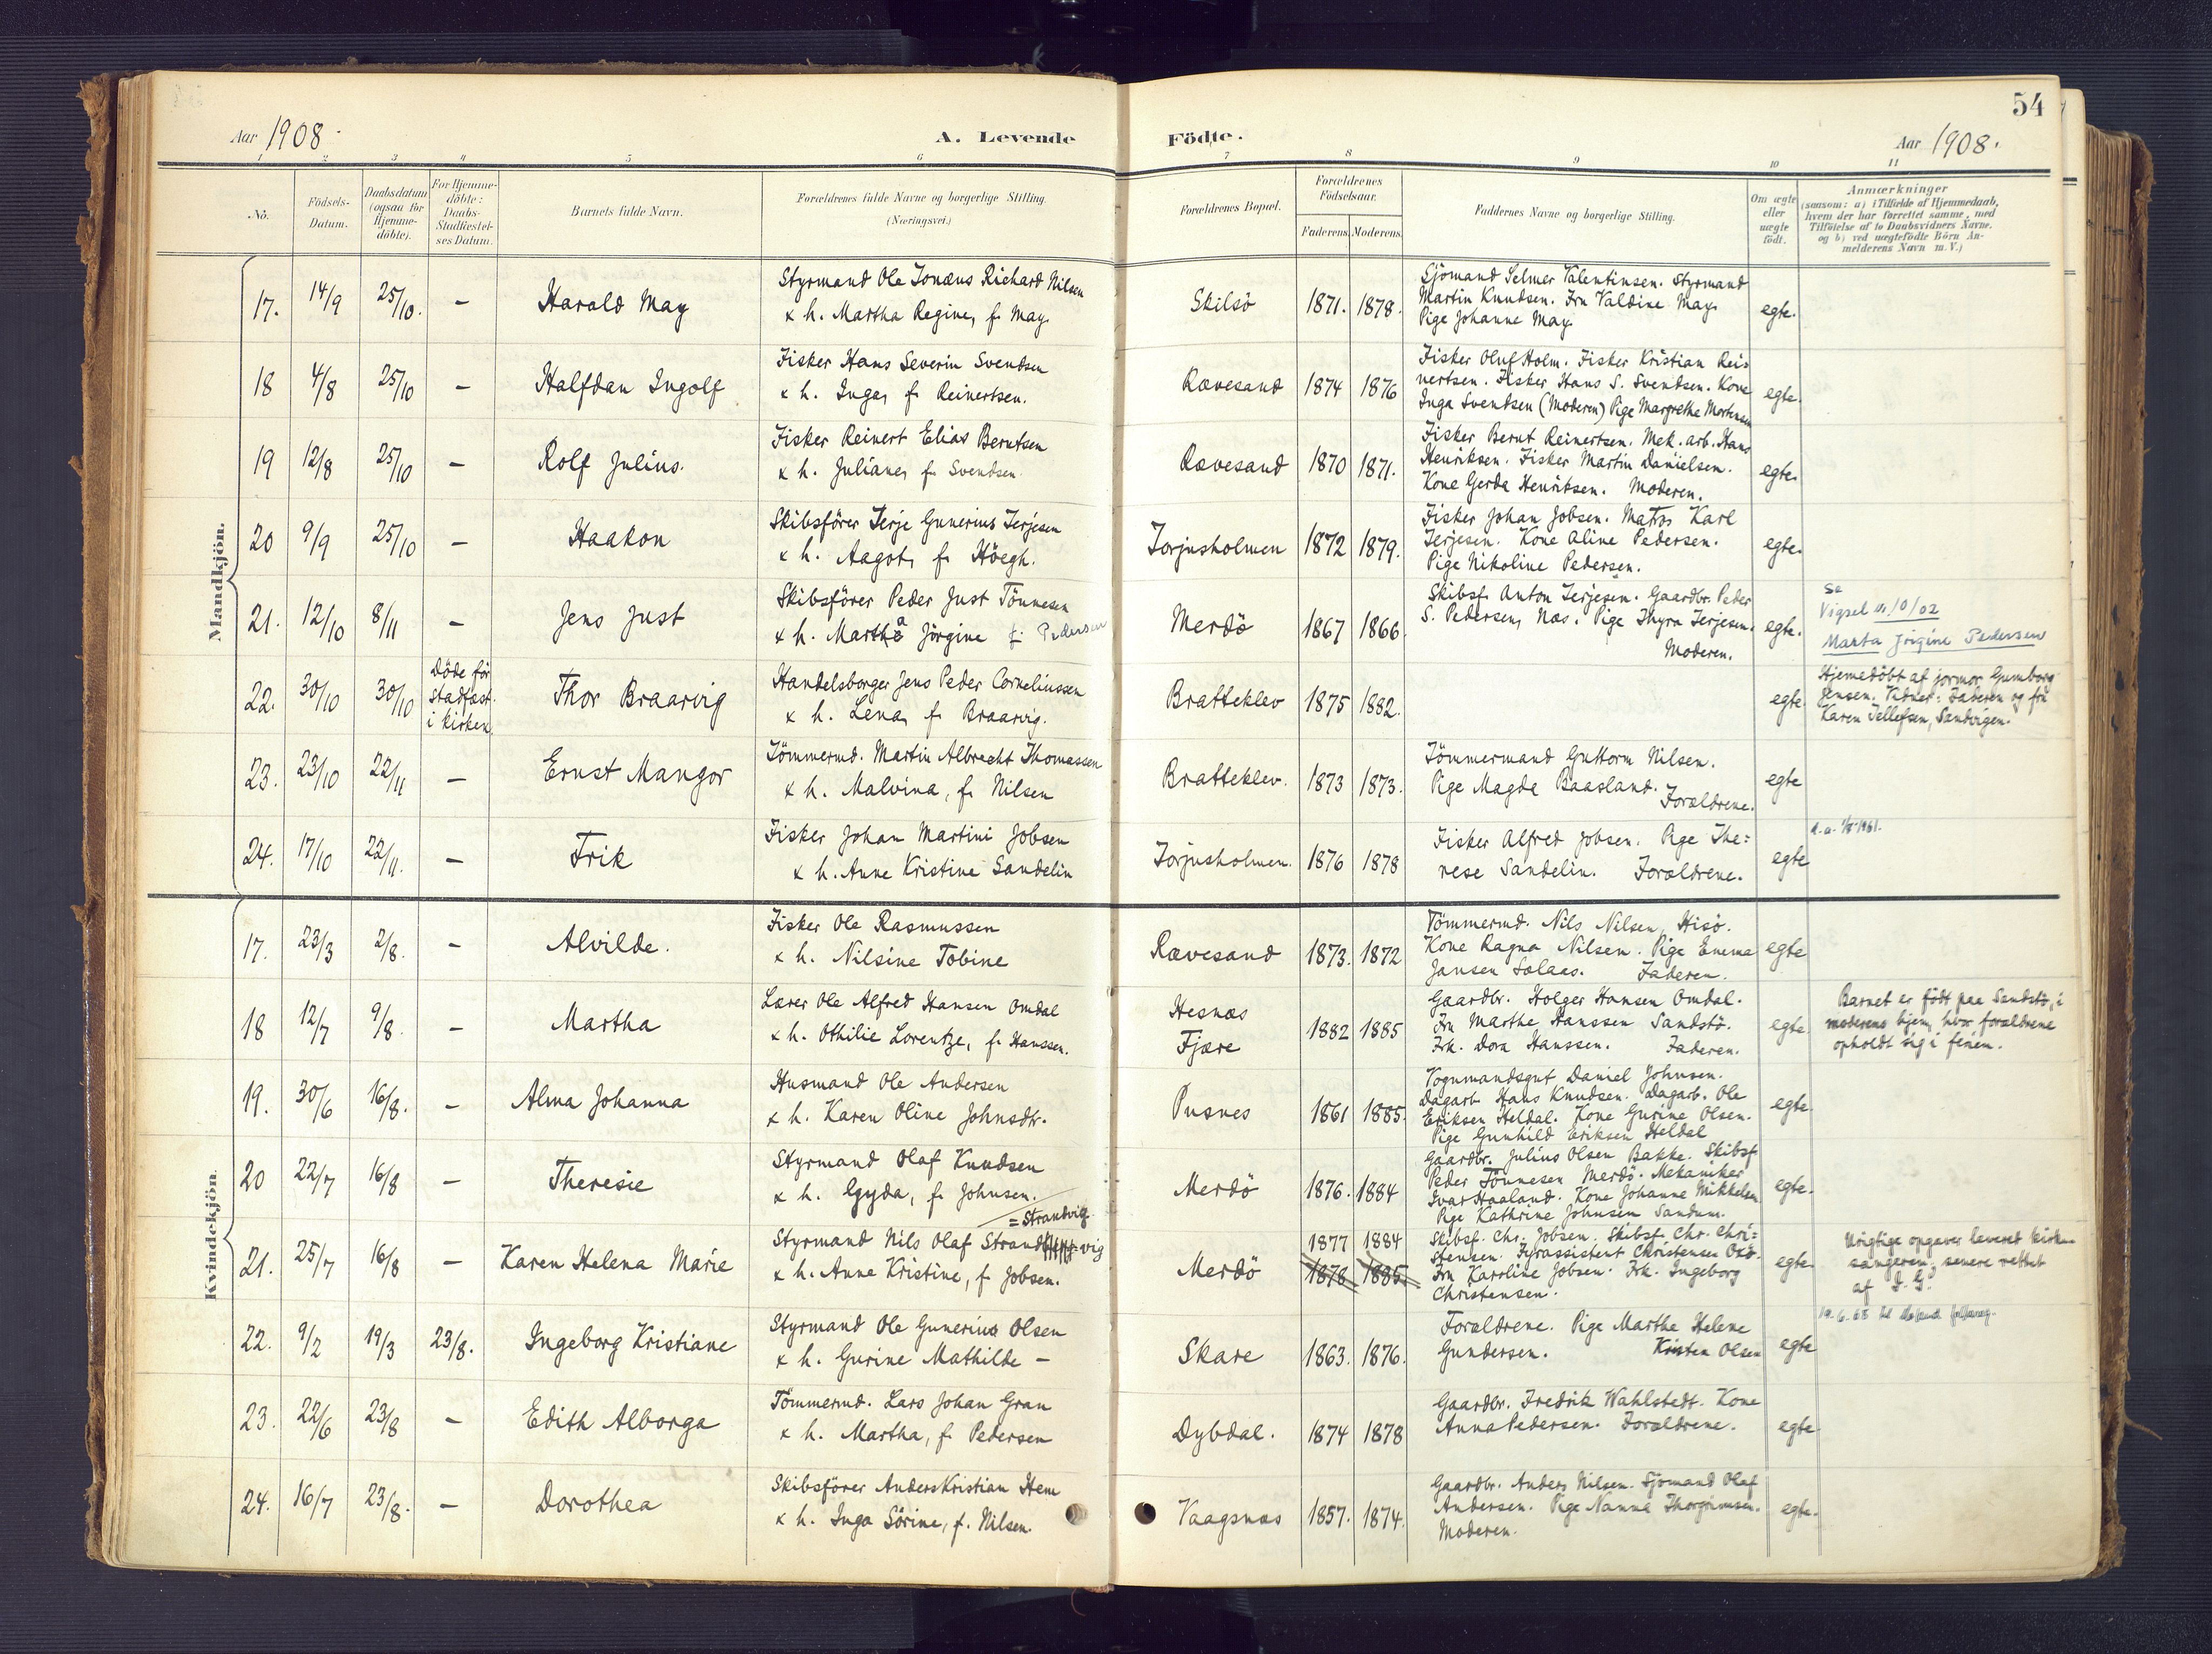 54
Aar 1908. A. Levende Födte. Aar 1908.
1 2 3 4 5 6 7 8 9 10 11
No.
Födsels-
Datum.
Daabsdatum
(ogsaa för
Hjemme-
döbte).
For Hjemme-
döbte:
Daabs-
Stadfæstel-
ses Datum.
Barnets fulde Navn.
Forældrenes fulde Navne og borgerlige Stilling.
(Næringsvei.)
Forældrenes Bopæl.
Forældrenes
Födselsaar.
Faderens. Moderens.
Faddernes Navne og borgerlige Stilling.
Om ægte
eller
uægte
födt.
Anmærkninger
(saasom: a) i Tilfælde af Hjemmedaab,
hvem der har forrettet samme, med
Tilföielse af to Daabsvidners Navne.
og b) ved uægtefödte Börn An-
melderens Navn m. V.)
Mandkjön.
17. 14/9 25/10. – Harald May
Styrmand Ole Jonæus Richard Nilsen
& h. Martha Regine, f. May.
Skilsö 1871. 1878.
Sjömand Selmer Valentinsen. Styrmand
Martin Knudsen. Fru Valdine May.
Pige Johanne May.
egte.
18 4/8 25/10 – Halfdan Ingolf
Fisker Hans Severin Svendsen
& h. Inga, f. Reinertsen.
Rævesand 1874 1876
Fisker Oluf Holm. Fisker Kristian Rei-
nertsen. Fisker Hans S. Svendsen. Kone
Inga Svendsen (Moderen) Pige Margrethe Mortensen
egte.
19 12/8 25/10 – Rolf Julius.
Fisker Reinert Elias Berntsen
& h. Juliane, f. Svendsen.
Rævesand 1870 1871.
Fisker Bernt Reinertsen. Mek. arb. Hans
Henriksen. Fisker Martin Danielsen.
Kone Gerda Henriksen. Moderen.
egte.
20 9/9 25/10 – Haakon
Skibsförer Terje Gunerius Terjesen
& h. Aagot, f. Höegh.
Torjusholmen 1872 1879.
Fisker Johan Jobsen. Matros Karl
Terjesen. Kone Aline Pedersen.
Pige Nikoline Pedersen.
egte.
21. 12/10 8/11 – Jens Just
Skibsförer Peder Just Tönnesen
& h. Martha Jörgine f. Pedersen
Merdö 1867 1866.
Skibsf. Anton Terjesen. Gaardbr. Peder
S. Pedersen, Næs. Pige Thyra Terjesen.
Moderen.
egte.
Se
Vigsel nr. 10/02
Marta Jrigine Pedersen
22. 30/10 30/10
Döde för
stadfæst.
i kirken.
Thor Braarvig
Handelsborger Jens Peder Corneliussen
& h. Lena, f. Braarvig.
Bratteklev 1875 1882.
egte
Hjemedöbt af jormor Gumborg
Jensen. Vidner: Faderen og fru
Karen Tellefsen, Sandvigen.
23. 23/10 22/11 – Ernst Mangor
Tömmermd. Martin Albrecht Thomassen
& h. Malvina, f. Nilsen
Bratteklev. 1873 1873.
Tömmermand Guttorm Nilsen.
Pige Magda Baasland. Forældrene.
egte
24. 17/10 22/11. – Frik
Fisker Johan Martini Jobsen
& h. Anne Kristine Sandelin
Torjusholmen. 1876 1878
Fisker Alfred Jobsen. Pige The=
rese Sandelin. Forældrene.
egte
Kvindekjön
17. 23/3 2/8. – Alvilde.
Fisker Ole Rasmussen
& h. Nilsine Tobine
Rævesand 1873. 1872
Tömmermd. Nils Nilsen, Hisö.
Kone Ragna Nilsen. Pige Emma
Jansen Solaas. Faderen.
egte
18 12/7 9/8. – Martha
Lærer Ole Alfred Hansen Omdal
& h. Othilie Lorentze, f. Hanssen.
Hesnæs
Fjære
1882 1885
Gaardbr. Holger Hansen Omdal.
Fru Marthe Hanssen Sandstö.
Frk. Dora Hanssen. Faderen.
egte.
Barnet er födt paa Sandstö, i
moderens hjem, hvor forældrene
opholdt sig i ferien.
19. 30/6 16/8. – Alma Johanna
Husmand Ole Andersen
& h. Karen Oline Johnsdtr.
Pusnes 1861 1885.
Vognmandsgut Daniel Johnsen.
Dagarb Hans Knudsen. Dagarb. Ole
Eriksen Heldal. Kone Gurine Olsen.
Pige Gunhild Eriksen Heldal
egte.
20 22/7 16/8 – Theresie
Styrmand Olaf Knudsen
& h. Gyda, f. Johnsen.
Merdö 1876. 1884
Gaardbr. Julius Olsen Bakke. Skibsf
Peder Tönnesen Merdö. Mekaniker
Ivar Haaland. Kone Johanne Mikkelsen
Pige Kathrine Johnsen Sandum.
egte.
21. 25/7 16/8 – Karen Helena Marie
= Strandvig
Styrmand Nils Olaf Strand vig
& h. Anne Kristine, f. Jobsen.
Merdö 1877 1884
1878 1885
Skibsf. Chr. Jobsen. Skibsf. Chr. Chri=
stensen. Fyrassistent Christensen Oxö.
Fru Karoline Jobsen. Frk. Ingeborg
Christensen.
egte.
Urigtige opgaver leveret kirke-
sangeren, senere rettet
af I. G.
22. 9/2 19/3 23/8. Ingeborg Kristiane
Styrmand Ole Gunerius Olsen
& h. Gurine Mathilde –
Skare 1863. 1876.
Forældrene. Pige Martha Helene
Gundersen. Kristen Olsen
egte
23. 22/6 23/8 – Edith Alborga
Tömmermd. Lars Johan Gran
& h. Martha, f. Pedersen
Dybdal. 1874 1878
Gaardbr. Fredrik Wahlstedt. Kone
Anna Pedersen. Forældrene.
egte
24. 16/7 23/8. – Dorothea
Skibsförer Anders Kristian Hem
& h. Inga Sörine, f. Nilsen.
Vaagsnæs 1857. 1874.
Gaardbr. Anders Nilsen. Sjömand Olaf
Andersen. Pige Nanna Thorgrimsen.
Moderen.
egte.